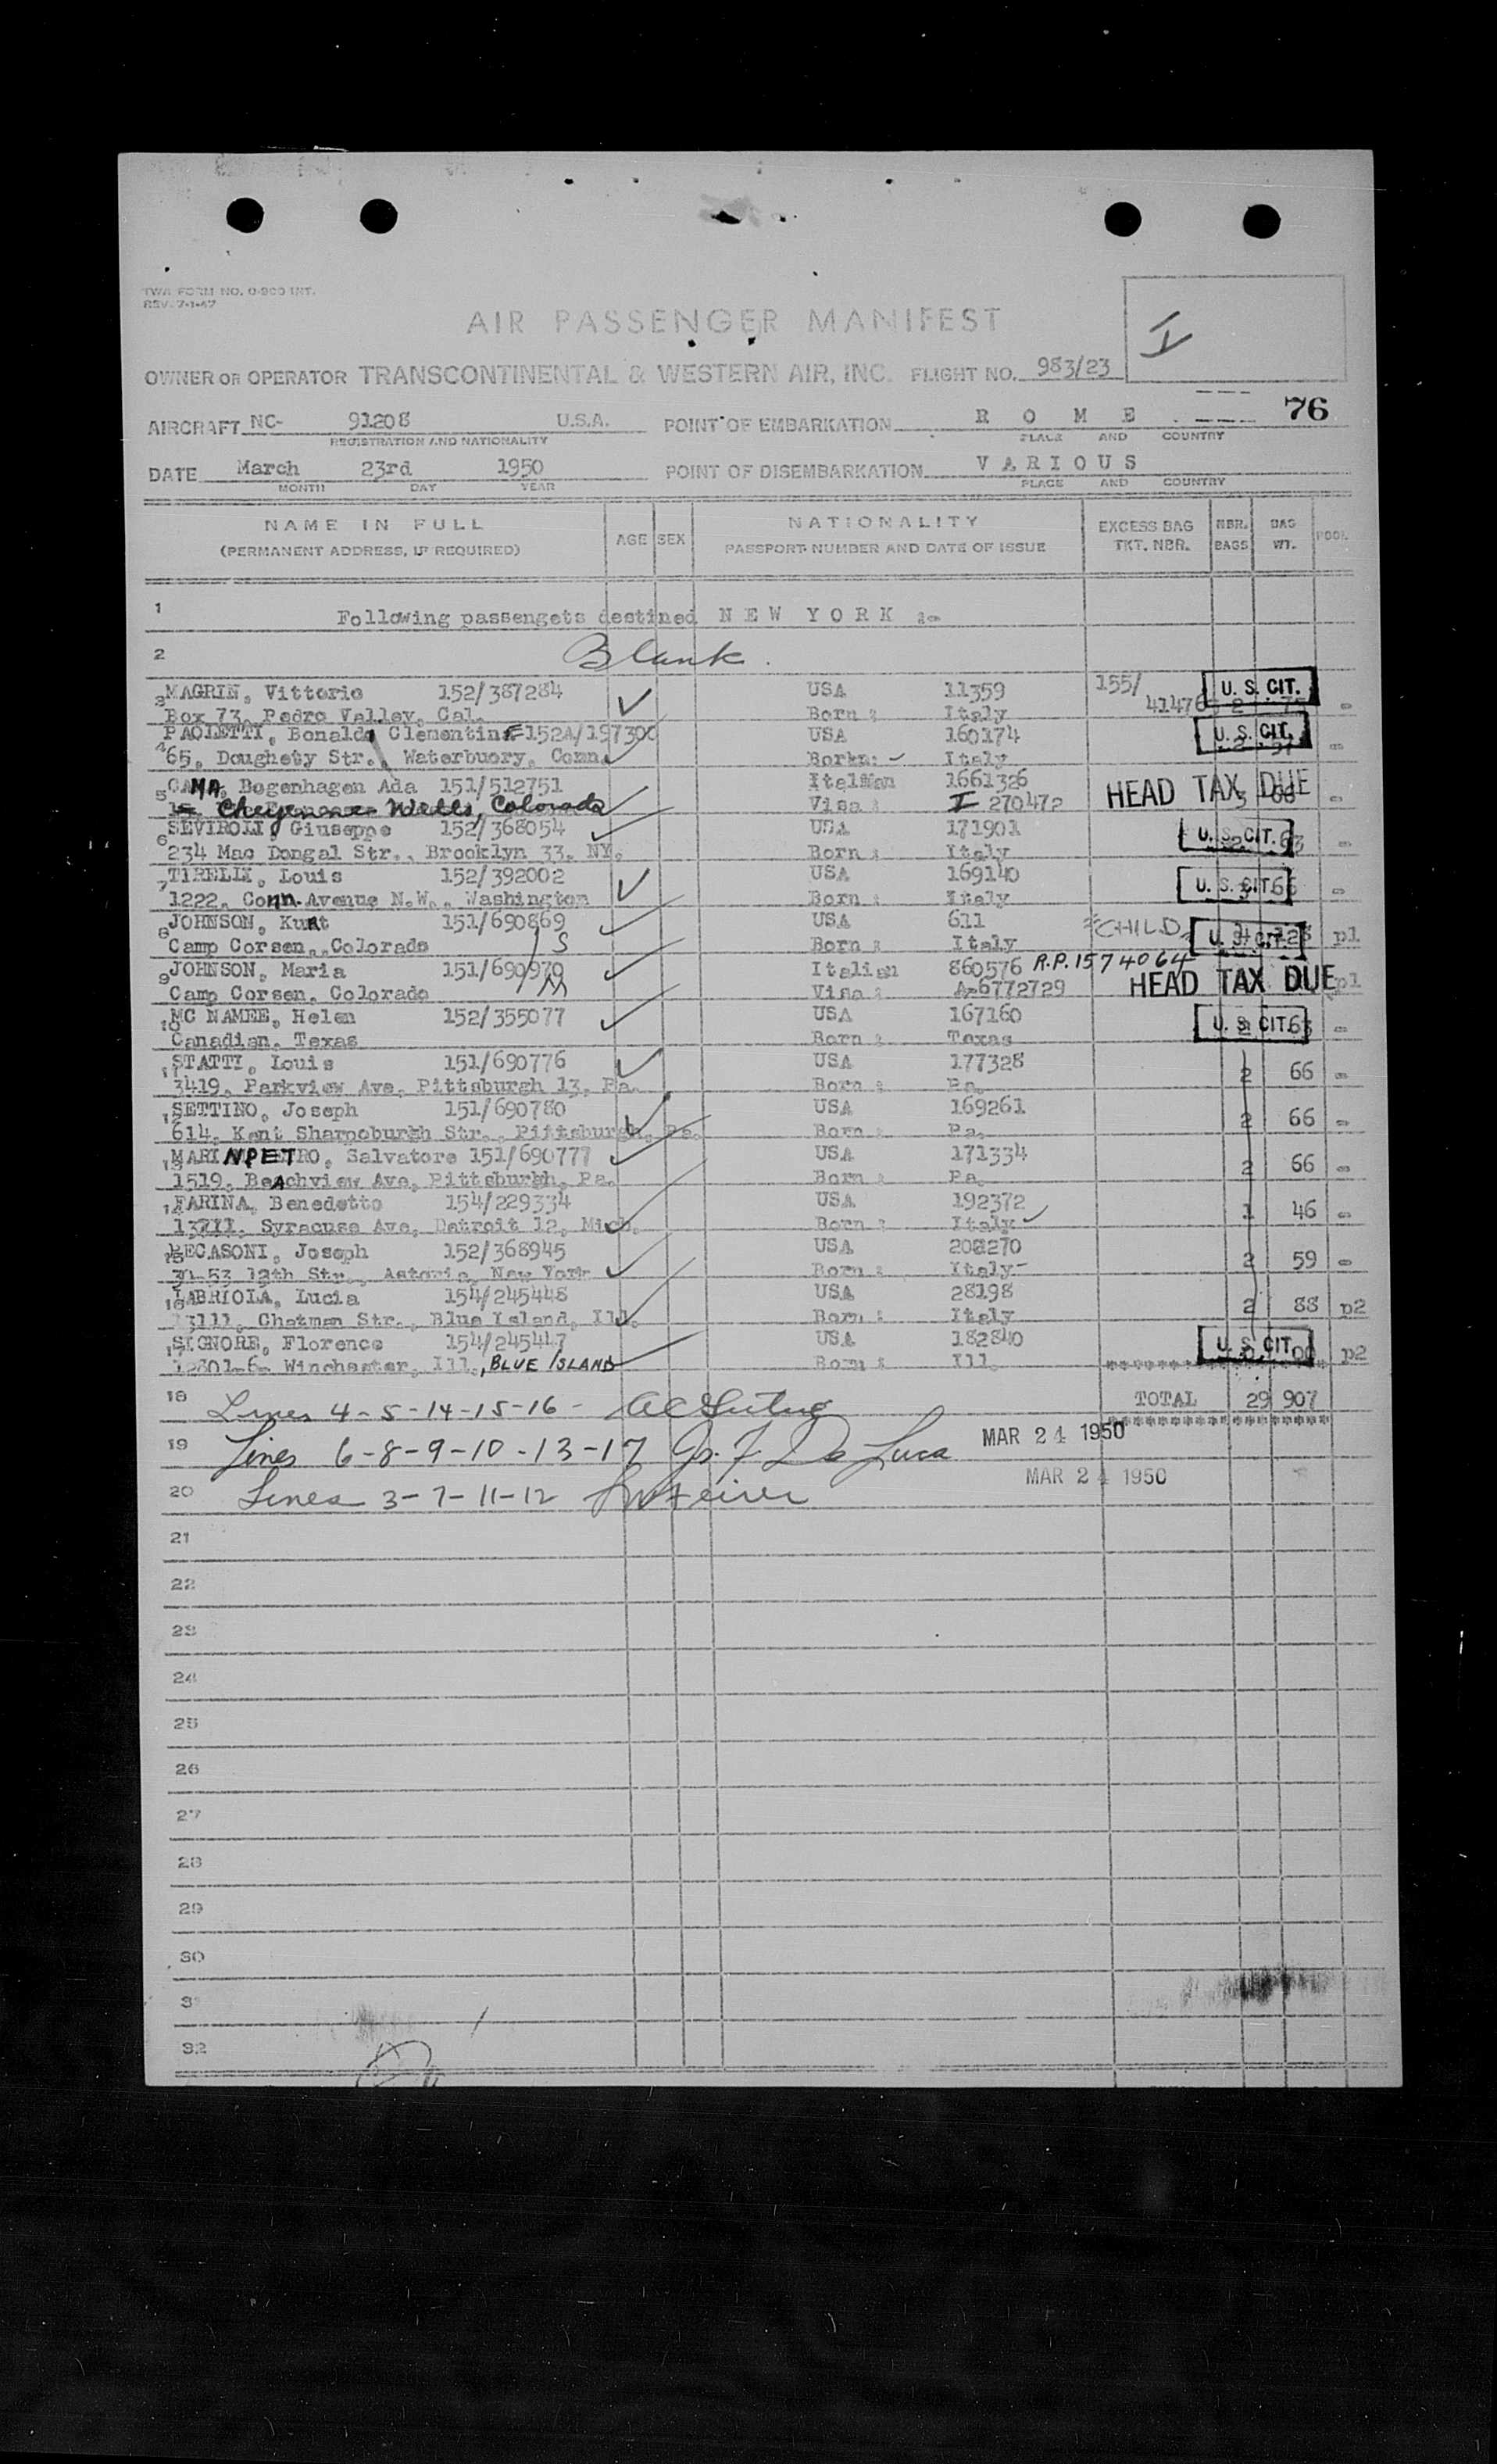 TWA FORM NO. 0-900 INT.
REV. 7-1-47
AIR PASSENGER MANIFEST
OWNER OR OPERATOR TRANSCONTINENTAL & WESTERN AIR, INC. FLIGHT NO. 983/23
76
AIRCRAFT NC- 91208 U.S.A. POINT OF EMBARKATION R O M E
REGISTRATION AND NATIONALITY PLACE AND COUNTRY
DATE March 23rd 1950 POINT OF DISEMBARKATION V A R I O U S
MONTH DAY YEAR PLACE AND COUNTRY
NAME IN FULL AGE SEX NATIONALITY EXCESS BAG NBR. BAG POOL
(PERMANENT ADDRESS, IF REQUIRED) PASSPORT NUMBER AND DATE OF ISSUE TKT. NBR. BAGS WT.
1 Following passengets destined N E W Y O R K :-
2 Blank.
3 MAGRIN, Vittorio 152/387284 USA 11359 155/ U. S. CIT.
Box 73, Pedro Valley, Cal. Born : Italy 41476 2
4 PAOLETTI, Bonalda Clementina 152A/197300 USA 160174 U. S. CIT.
65, Doughety Str., Waterbuory, Conn. Italy
5 Bogenhagen Ada 151/512751 1661326 HEAD TAX DUE
Cheyenne Wells, Colorado Visa : I 270472
6 SEVIROLI, Giuseppe 152/368054 USA 171901 U. S. CIT.
234 Mac Dongal Str., Brooklyn 33, NY. Born : Italy
7 TIRELLI, Louis 152/392002 USA 169140 U. S. CIT.
1222, Conn. Avenue N.W., Washington Born : Italy
8 JOHNSON, Kurt 151/690869 USA 611 CHILD U. S. CIT. p1
S
Camp Corsen, Colorado Born : Italy
9 JOHNSON, Maria 151/690970 Italian 860576 R.P.1574064 HEAD TAX DUE p1
M
Camp Corsen, Colorado Visa : A-6772729
10 MC NAMEE, Helen 152/355077 USA 167160 U. S. CIT.
Canadian, Texas Born : Texas
11 STATTI, Louis 151/690776 USA 177328 2 66 -
3419, Parkview Ave, Pittsburgh 13, Pa. Born : Pa.
12 SETTINO, Joseph 151/690780 USA 169261 2 66 -
614, Kent Sharpoburgh Str., Pittsburgh, Pa. Born : Pa.
13 MARINPETRO, Salvatore 151/690777 USA 171334 2 66 -
1519, Beachview Ave, Pittsburgh, Pa. Born : Pa.
14 FARINA, Benedetto 154/229334 USA 192372 1 46 -
13711, Syracuse Ave, Detroit 12, Mich. Born : Italy
15 BECASONI, Joseph 152/368945 USA 208270 2 59 -
30-53 12th Str., Astoria, New York Born : Italy
16 LABRIOLA, Lucia 154/245448 USA 28198 2 88 p2
13111, Chatman Str., Blue Island, Ill. Born : Italy
17 SIGNORE, Florence 154/245447 USA 182840 U. S. CIT. p2
Winchester, Ill., BLUE ISLAND Born : Ill.
18 Lines 4-5-14-15-16- TOTAL 29 907
19 Lines 6-8-9-10-13-17 De Luca MAR 24 1950
20 Lines 3-7-11-12 MAR 24 1950
21
22
23
24
25
26
27
28
29
30
31
32